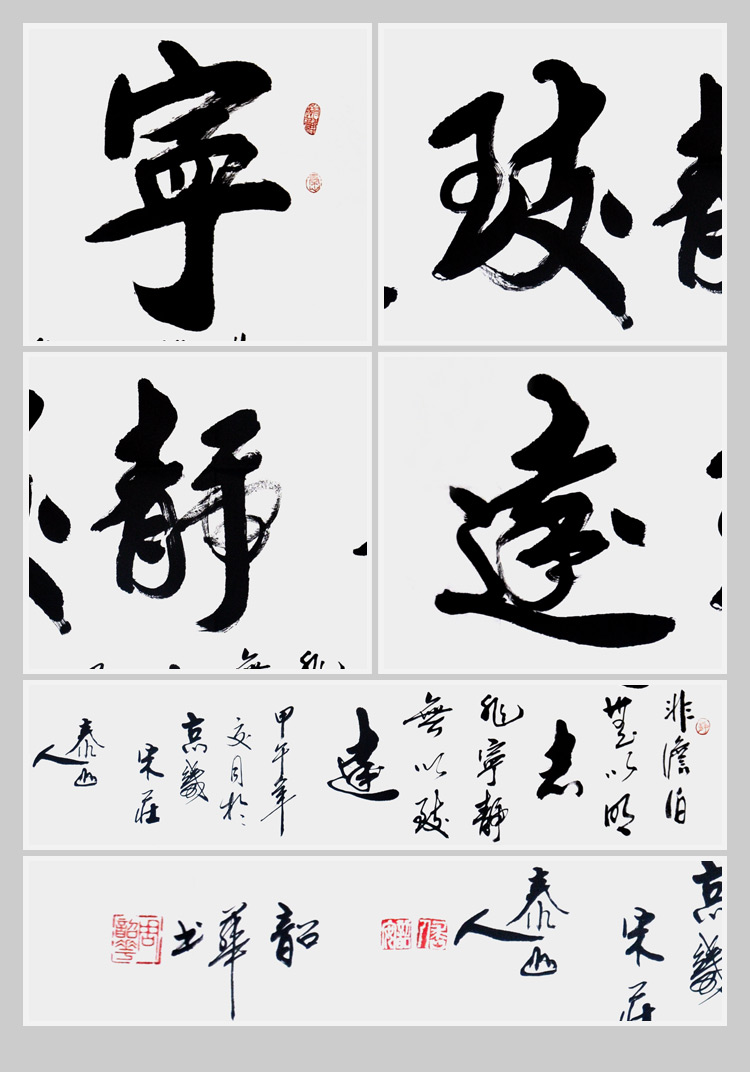 寧
致
靜
遠
非澹泊
無以明
志
非寧靜
無以致
遠
甲午年
夏月於
京畿
宋莊
泰山
人
京畿
宋莊
泰山
人
韶
華
书
周韶華